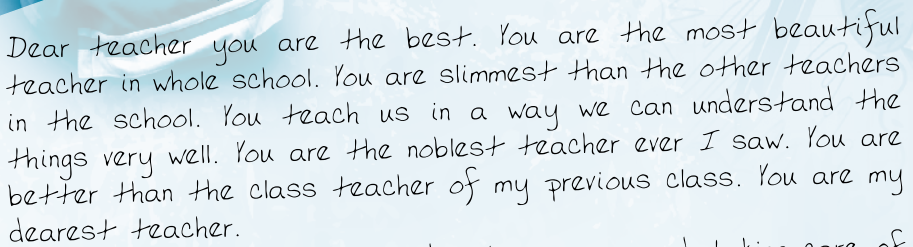 Dear teacher you are the best. You are the most beautiful
teacher in whole school. You are slimmest than the other teachers
in the school. You teach us in a way we can understand the
things very well. You are the noblest teacher ever I saw. You are
better than the class teacher of my previous class. You are my
dearest teacher.